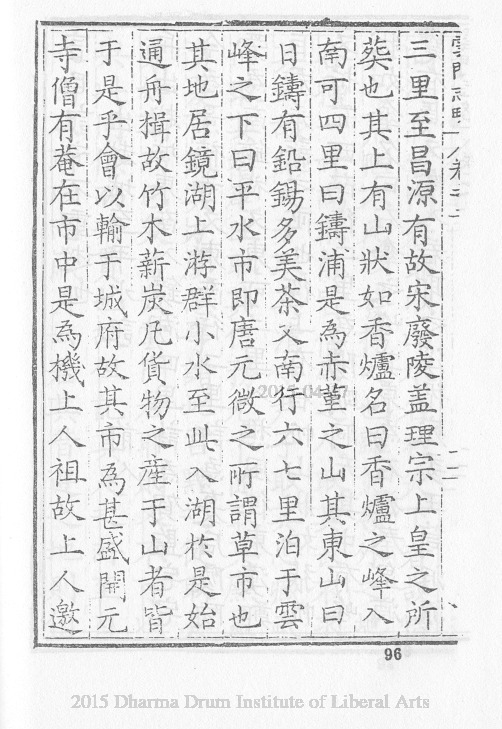 雲門志略卷之二
三里至昌源有故宋廢陵盖理宗上皇之所
葬也其上有山狀如香爐名曰香爐之峰入
南可四里曰鑄浦是為赤堇之山其東山曰
日鑄有鉛錫多美茶又南行六七里泊于雲
峰之下曰平水市即唐元微之所謂草市也
其地居鏡湖上游群小水至此入湖於是始
通舟楫故竹木薪炭凡貨物之産于山者皆
于是乎會以輸于城府故其市為甚盛開元
寺僧有菴在市中是為機上人祖故上人邀
96
2015 Dharma Drum Institute of Liberal Arts